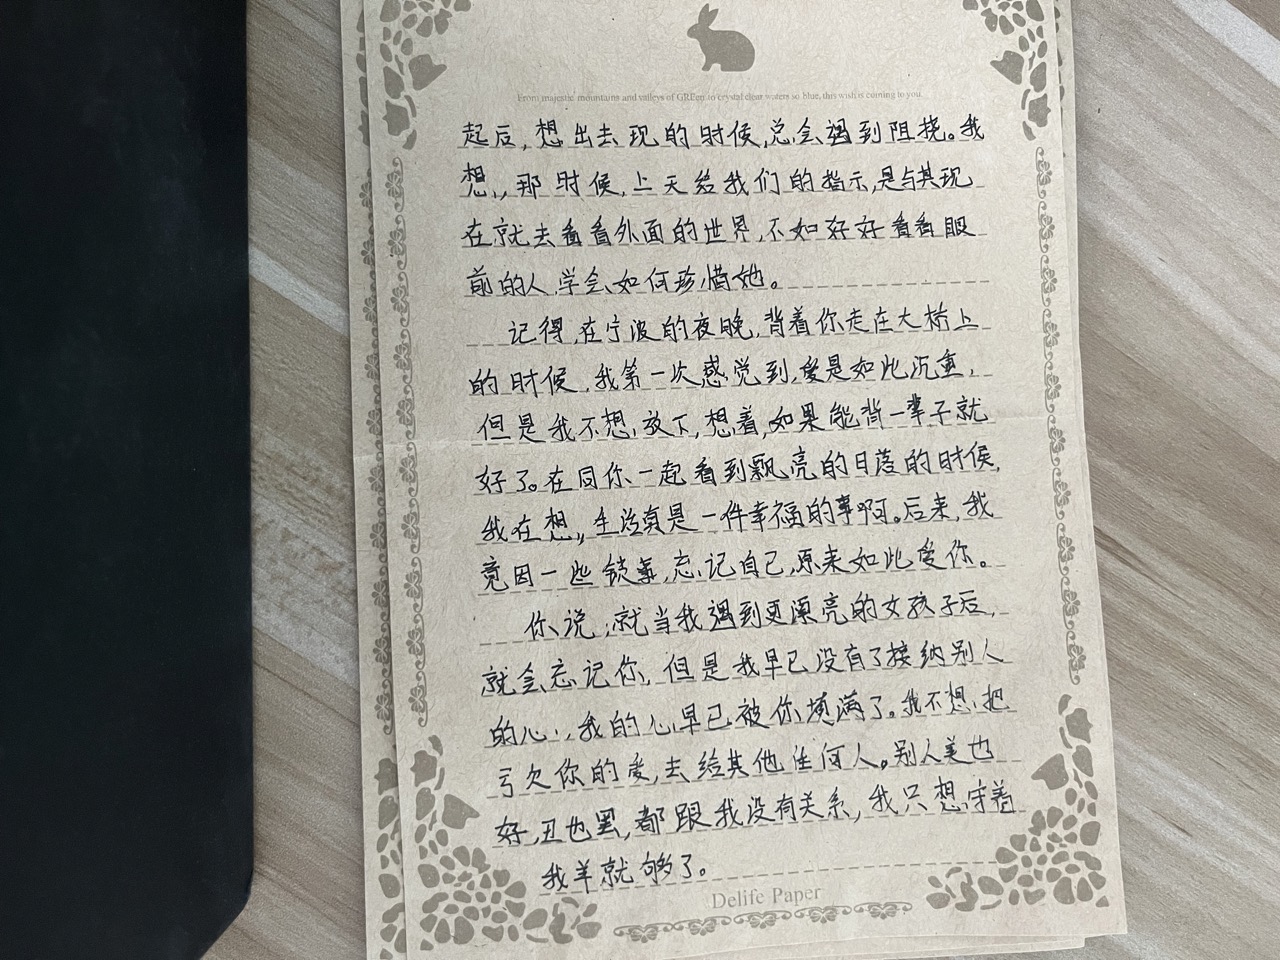 From majestic mountains and valleys of GREen to crystal clear waters so blue, this wish is coming to you.
起后,想出去现的时候,总会遇到阻挠。我
想,那时候,上天给我们的指示,是与其现
在就去看看外面的世界,不如好好看看眼
前的人,学会如何珍惜她。
记得,在宁波的夜晚,背着你走在大桥上
的时候,我第一次感觉到,爱是如此沉重,
但是我不想放下,想着,如果能背一辈子就
好了。在同你一起看到飘亮的日落的时候,
我在想,生活真是一件幸福的事啊。后来,我
竟因一些锁事,忘记自己,原来如此爱你。
你说,就当我遇到更漂亮的女孩子后,
就会忘记你,但是我早已没有了接纳别人
的心,我的心早已被你填满了。我不想把
亏欠你的爱,去给其他任何人。别人美也
好,丑也罢,都跟我没有关系,我只想守着
我羊就够了。
Delife Paper